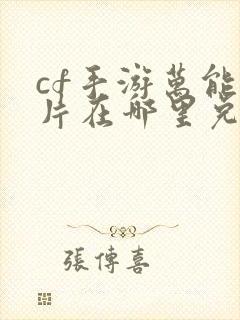 cf手游萬能
片在哪里兑
張傳喜